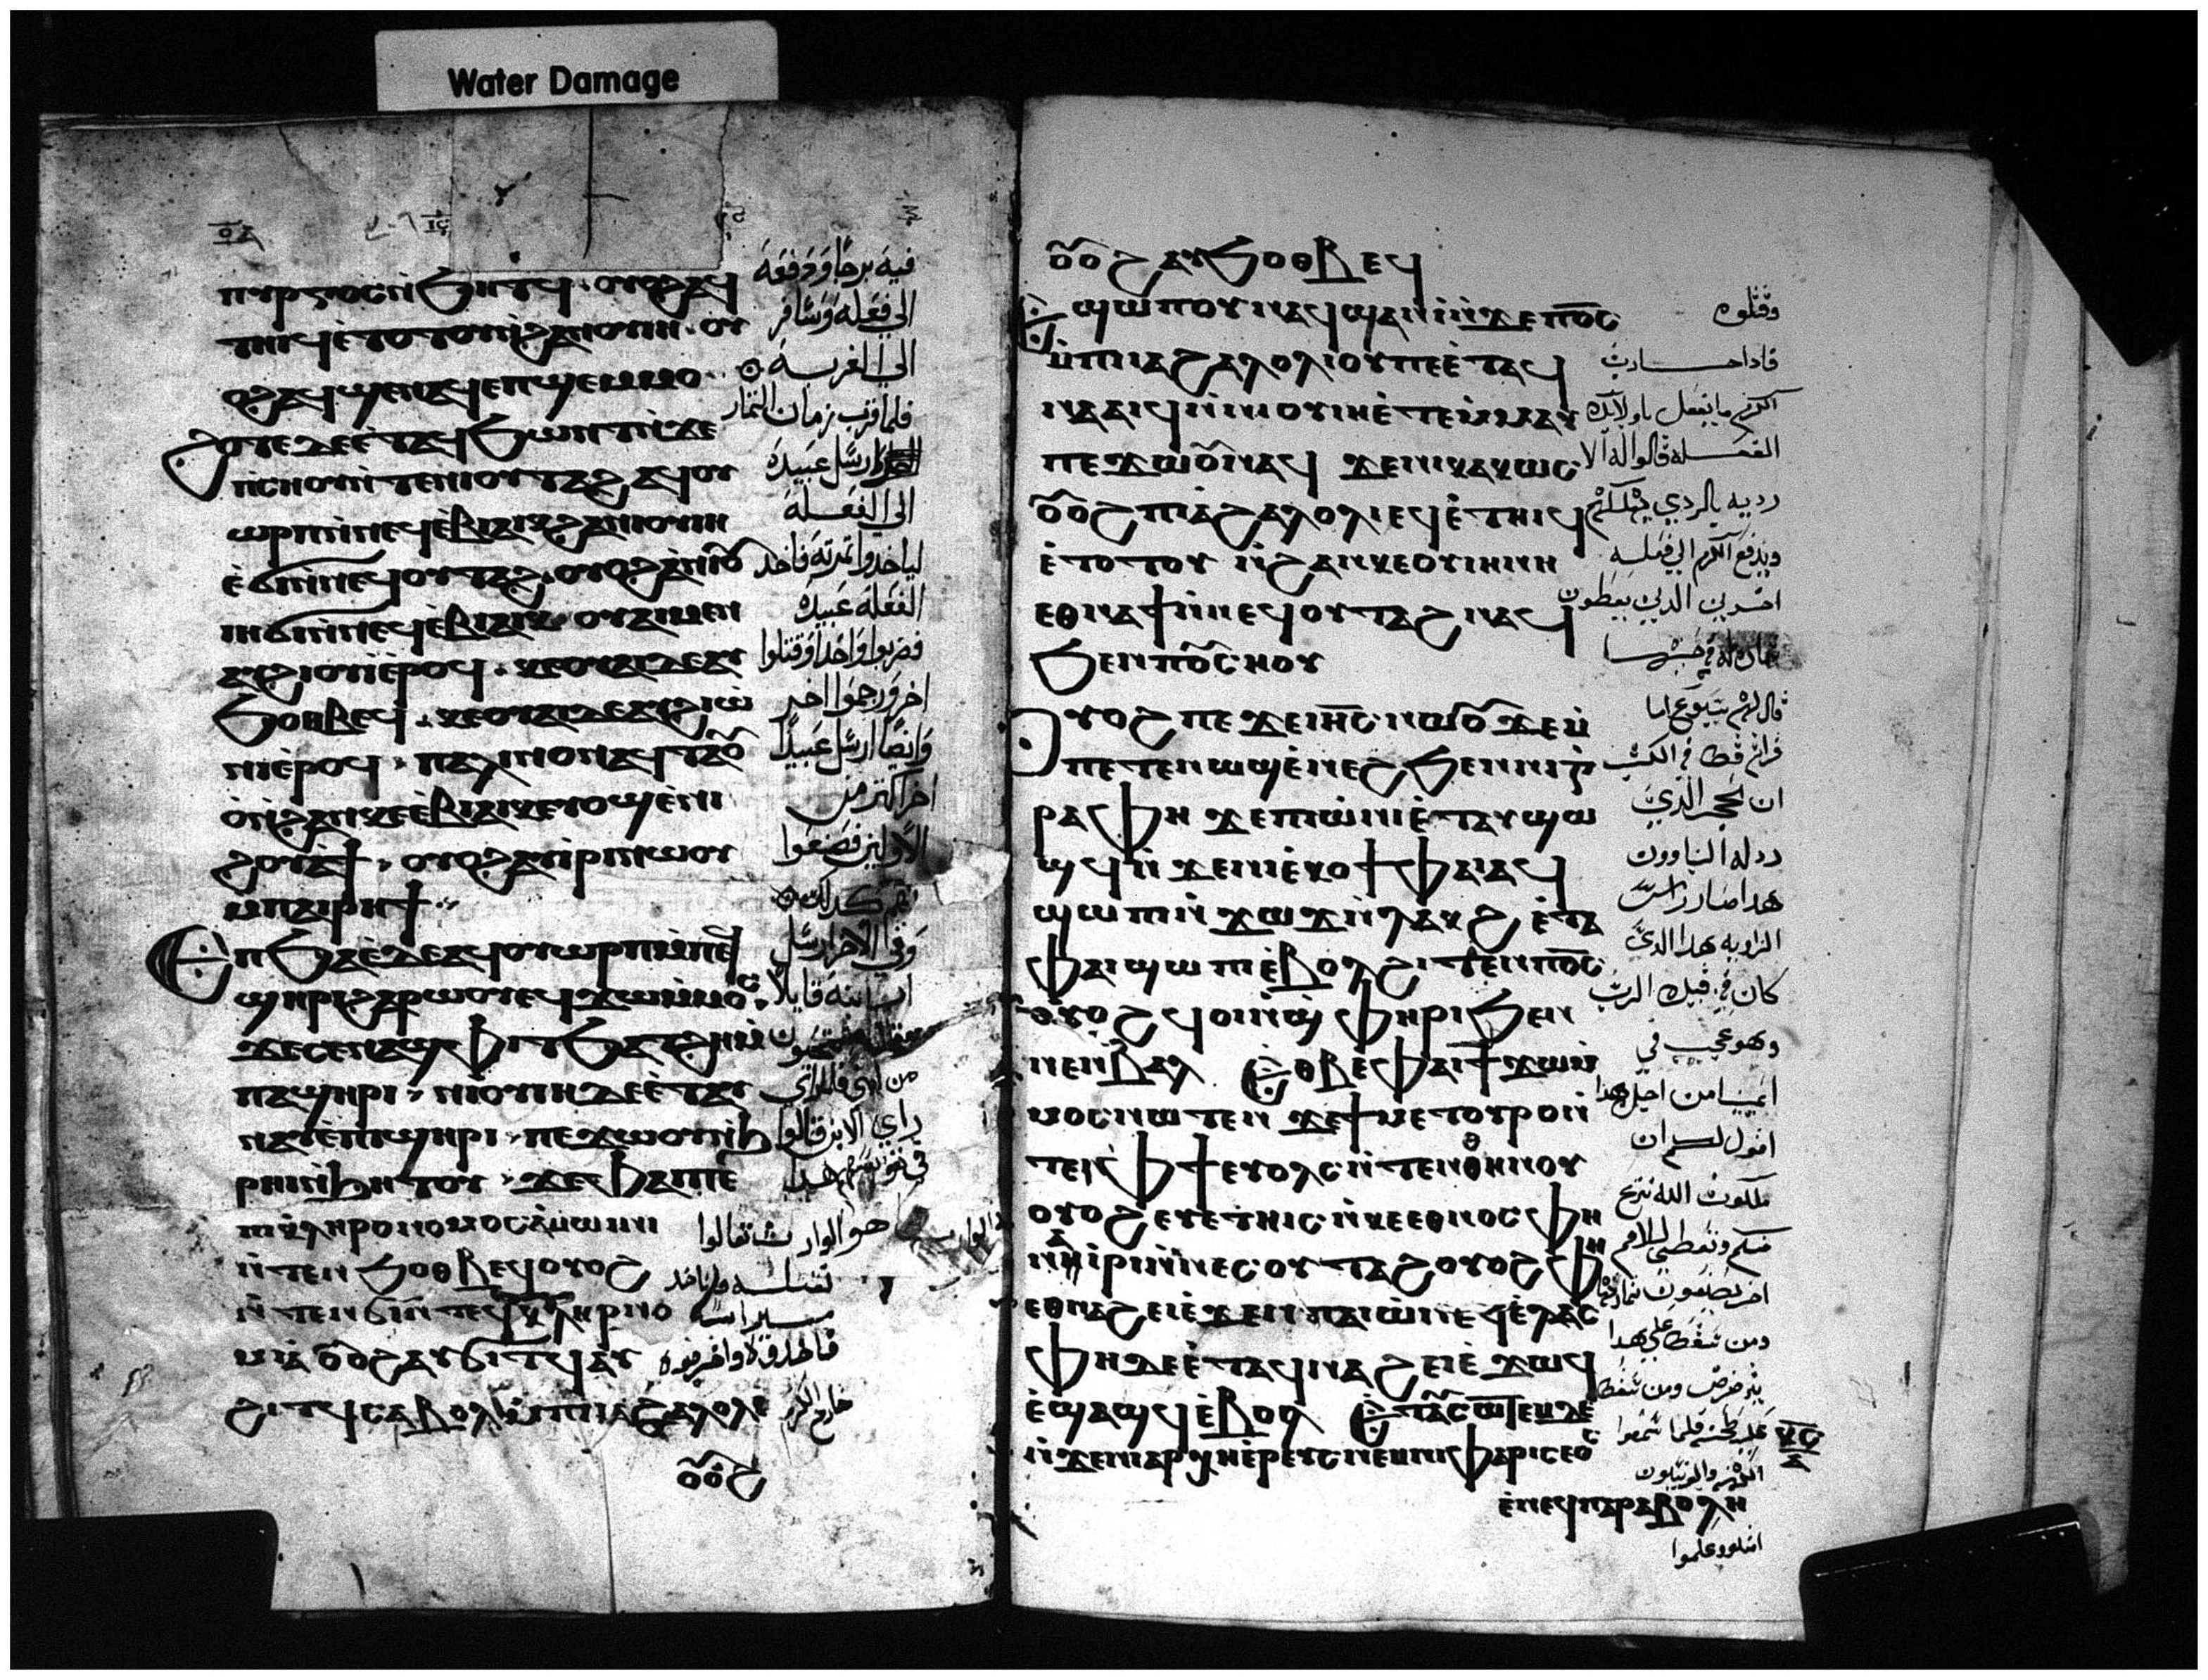 Water Damage
ⲡⲩⲣⲅⲟⲥⲛ̀ϧⲏⲧϥ · ⲟⲩⲟϩⲁϥ
ⲧⲏⲓϥⲉ̀ⲧⲟⲧⲟⲩⲛ̀ϩⲁⲛⲟⲩⲓⲏ · ⲟⲩ
ⲟϩⲁϥϣⲉⲛⲁϥⲉⲡϣⲉⲙⲙⲟ
ϩⲟⲧⲉⲇⲉⲉ̀ⲧⲁϥϧⲱⲛⲧⲛ̀ϫⲉ
ⲡⲥⲏⲟⲩⲛ̀ⲧⲉⲛⲓⲟⲩⲧⲁϩ ⲁϥⲟⲩ
ⲱⲣⲡⲛ̀ⲛⲉϥⲉ̀ⲃⲓⲁⲓⲕϩⲁⲛⲓⲟⲩⲓⲏ
ⲉ̀ϭⲓⲛ̀ⲛⲉϥⲟⲩⲧⲁϩ · ⲟⲩⲟϩⲁⲛⲓⲟⲩ
ⲓⲏϭⲓⲛ̀ⲛⲉϥⲉ̀ⲃⲓⲁⲓⲕ ⲟⲩⲁⲓⲙⲉⲛ
ⲁⲩϩⲓⲟⲩⲓⲉ̀ⲣⲟϥ · ⲕⲉⲟⲩⲁⲓⲇⲉⲁⲩ
ϧⲟⲑⲃⲉϥ · ⲕⲉⲟⲩⲁⲓⲇⲉⲁⲩϩⲓⲱ̀
ⲛⲓⲉ̀ⲣⲟϥ · ⲡⲁⲗⲓⲛⲟⲛⲁϥⲧⲁⲟⲩ
ⲟ̀ⲛ̀ϩⲁⲛⲕⲉⲉ̀ⲃⲓⲁⲓⲕⲉⲩⲟϣⲉ̀ⲛⲓ
ϩⲟⲩⲁϯ · ⲟⲩⲟϩⲁⲩⲓⲣⲓⲛⲱⲟⲩ
ⲙⲡⲁⲓⲣⲏϯ
ⲉⲡϧⲁⲉ̀ⲇⲉⲁϥⲟⲩⲱⲣⲡⲙ̀ⲡⲉϥ
ϣⲏⲣⲓϩⲁⲣⲱⲟⲩⲉϥϫⲱⲙ̀ⲙⲟⲥ
ϫⲉⲥⲉⲛⲁϣⲫⲓⲧϧⲁⲧϩⲏⲙ̀
ⲡⲁϣⲏⲣⲓ · ⲛⲓⲟⲩⲓⲏⲇⲉⲉ̀ⲧⲁⲩ
ⲛⲁⲩⲉ̀ⲡⲓϣⲏⲣⲓ · ⲡⲉϫⲱⲟⲩⲛ̀ϧ
ⲣⲏⲓⲛ̀ϧⲏⲧⲟⲩ · ϫⲉⲫⲁⲓⲡⲉ
ⲡⲓⲕ̀ⲗⲏⲣⲟⲛⲟⲙⲟⲥⲁ̀ⲙⲱⲓⲛⲓ
ⲛ̀ⲧⲉⲛϧⲟⲑⲃⲉϥⲟⲩⲟϩ
ⲛ̀ⲧⲉⲛϭⲓⲛ̀ⲧⲉϥⲕ̀ⲗⲏⲣⲛⲟ
ⲙⲓⲁ̀ ⲟⲩⲟϩⲁⲩϭⲓⲧϥⲁⲩ
ϩⲓⲧϥⲥⲁⲃⲟⲗⲙ̀ⲡⲓⲁϩⲁⲗⲟⲗⲓ
ⲟⲩⲟϩ
فيه برجا ودفعه
الي فعله وسافر
الي الغربه
فلما قرب زمان الثمار
ارسل عبيده
الي الفعلة
لياخدوا ثمرته فاخد
الفعلة عبيده
فضربوا واحدا وقتلوا
اخر ورجموا اخر
وايضا ارسل عبيدا
اخر اكثر من
الاولين فصنعوا
بهم كدلك
وفي الاخر ارسل
ابنه قايلا
من ابني فلما
راي الابن قالوا
في نفوسهم هدا
هو الوارث تعالوا
نقتله وناخد
ميراثه
فاخدوه واخرجوه
خارج الكرم
ⲟⲩⲟϩⲁⲩϧⲟⲑⲃⲉϥ
ⲉϣⲱⲡⲟⲩⲛⲁϥϣⲁⲛⲓⲛ̀ϫⲉⲡⲟ̅ⲥ̅
ⲙ̀ⲡⲓⲁϩⲁⲗⲟⲗⲓⲟⲩⲡⲉⲉ̀ⲧⲁϥ
ⲛⲁⲁⲓϥⲛ̀ⲛⲓⲟⲩⲓⲏⲉ̀ⲧⲉⲙ̀ⲙⲁⲩ
ⲡⲉϫⲱⲟⲩⲛⲁϥ ϫⲉⲛⲓⲕⲁⲕⲱⲥ
ⲟⲩⲟϩⲡⲓⲁ̀ϩⲁⲗⲟⲗⲓⲉϥⲉ̀ⲧⲏⲓϥ
ⲉ̀ⲧⲟⲧⲟⲩ ⲛ̀ϩⲁⲛⲕⲉⲟⲩⲓⲏⲓⲏ
ⲉⲑⲛⲁϯⲛ̀ⲛⲉϥⲟⲩⲧⲁϩⲛⲁϥ
ϧⲉⲛⲡⲟⲩⲥⲏⲟⲩ
ⲟⲩⲟϩⲡⲉϫⲉⲓⲏ̅ⲥ̅ⲛⲱⲟⲩϫⲉⲙ̀
ⲡⲉⲧⲉⲛⲱϣⲉ̀ⲛⲉϩϧⲉⲛⲛⲓⲅ̀
ⲣⲁⲫⲏ ϫⲉⲡⲓⲱ̀ⲛⲓⲉ̀ⲧⲁⲩϣⲱ
ϣϥⲛ̀ϫⲉⲛⲓⲉ̀ⲕⲟϯⲫⲁⲓⲁϥ
ϣⲱⲡⲓⲛ̀ϫⲱϫⲛ̀ⲗⲁⲕϩ ⲉ̀ⲧⲁ
ⲫⲁⲓϣⲱⲡⲓⲉ̀ⲃⲟⲗϩⲓⲧⲉⲛⲡⲟ̅ⲥ̅
ⲟⲩⲟϩϥⲟⲓⲛ̀ϣ̀ⲫⲏⲣⲓϧⲉⲛ
ⲛⲉⲛⲃⲁⲗ ⲉⲑⲃⲉⲫⲁⲓϯϫⲱⲙ̀
ⲙⲟⲥⲛⲱⲧⲉⲛ ϫⲉϯⲙⲉⲧⲟⲩⲣⲟⲛ̀
ⲧⲉⲫϯⲉⲩⲟⲗⲥⲛ̀ⲧⲉⲛⲑⲏⲛⲟⲩ
ⲟⲩⲟϩⲉⲩⲉⲧⲏⲓⲥⲛ̀ⲕⲉⲉⲑⲛⲟⲥⲫⲏ
ⲉⲑⲛⲁⲓⲣⲓⲛ̀ⲛⲉⲥⲟⲩⲧⲁϩⲟⲩⲟϩⲫⲏ
ⲉⲑⲛⲁϩⲉⲓⲉ̀ϫⲉⲛⲡⲁⲓⲱ̀ⲛⲓⲉϥⲉ̀ⲗⲁⲥ
ⲫⲏⲇⲉⲉ̀ⲧⲁϥⲛⲁϩⲉⲓⲉ̀ϫⲱϥ
ⲉ̀ϣⲁϣϥⲉ̀ⲃⲟⲗ ⲉⲧⲁⲩⲥⲱⲧⲉⲙⲇⲉ
ⲛ̀ϫⲉⲛⲓⲁⲣⲭⲏⲉ̀ⲣⲉⲩⲥⲛⲉⲙⲛⲓⲫⲁⲣⲓⲥⲉⲟⲥ
ⲉ̀ⲛⲉϥⲡⲁⲣⲁⲃⲟⲗⲏ
وقتلوه
فادا جا رب
الكرم ما يفعل باولايك
الفعلة قالوا له الا
رديه بالردي يهلكهم
ويدفع الكرم الي فعله
اخرين الدين يعطون
قال لهم يسوع اما
قراتم قط في الكتب
ان الحجر الدي
ردله البناوون
هدا صار راس
الزاويه هدا الدي
كان من قبل الرب
وهو عجيب في
اعيننا من اجل هدا
اقول لكم ان
ملكوت الله تنزع
منكم وتعطي للامم
اخر يصنعون ثمارها
ومن سقط علي هدا
يترضض ومن سقط
عليه يطحنه فلما سمعوا
الكهنه والفريسيون
امثله وعلموا